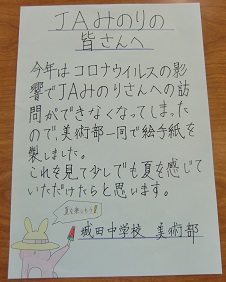 JAみのりの
皆さんへ
今年はコロナウイルスの影
響でJAみのりさんへの訪
問ができなくなってしまった
ので、美術部一同で絵手紙を
製しました。
これを見て少しでも夏を感じて
いただけたらと思います。
城田中学校 美術部